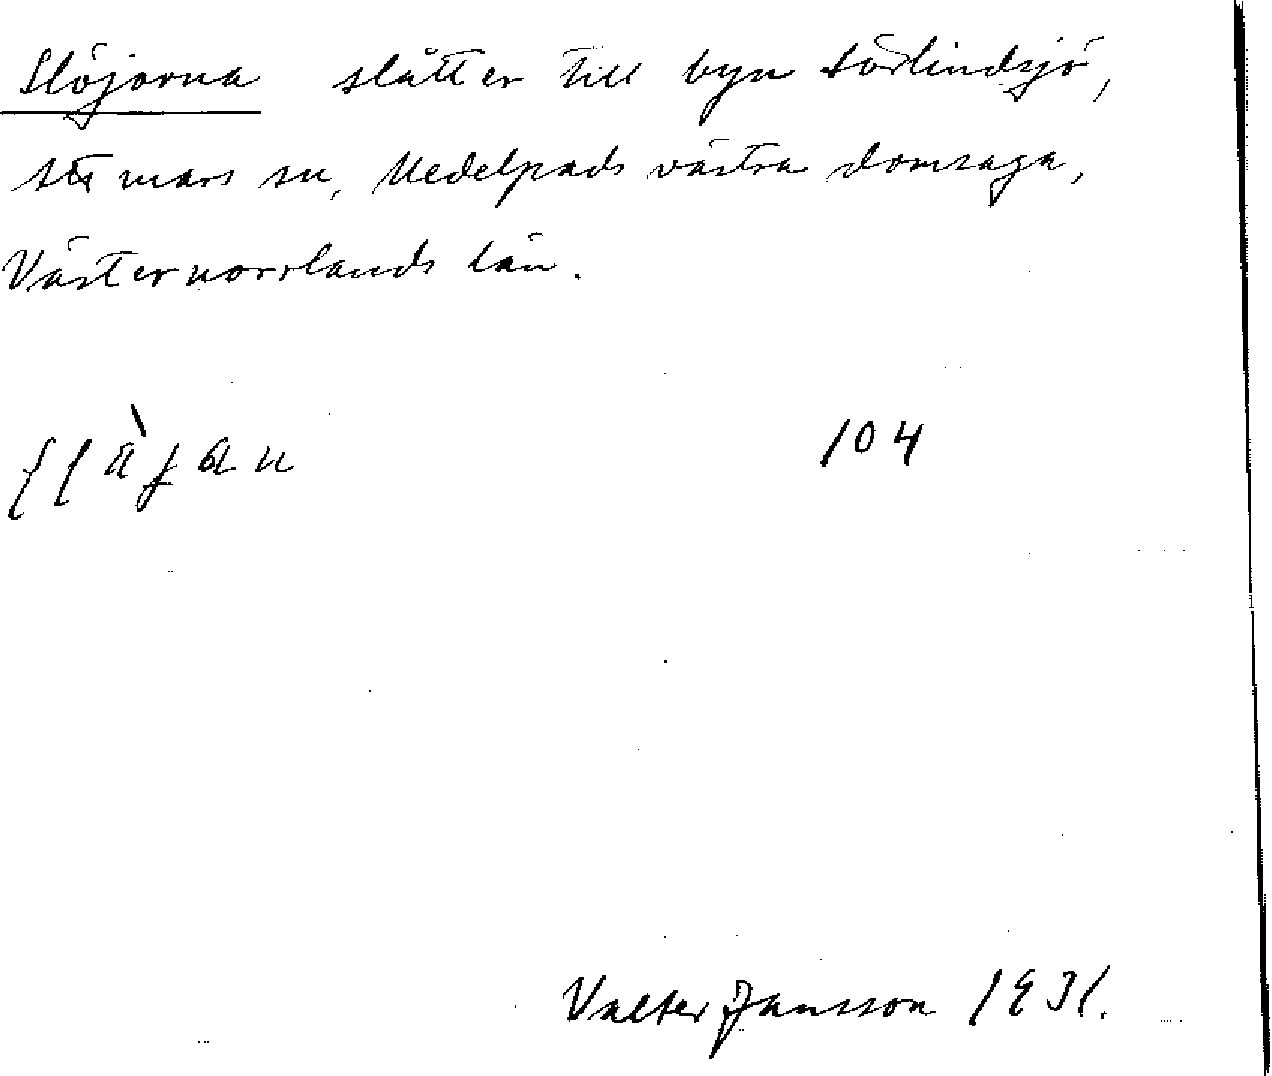 Slöjorna slåtter till byn Sörlindsjö,
Attmars sn, Medelpads västra domsaga,
Västernorrlands län.
104
Valter Jansson 1931.